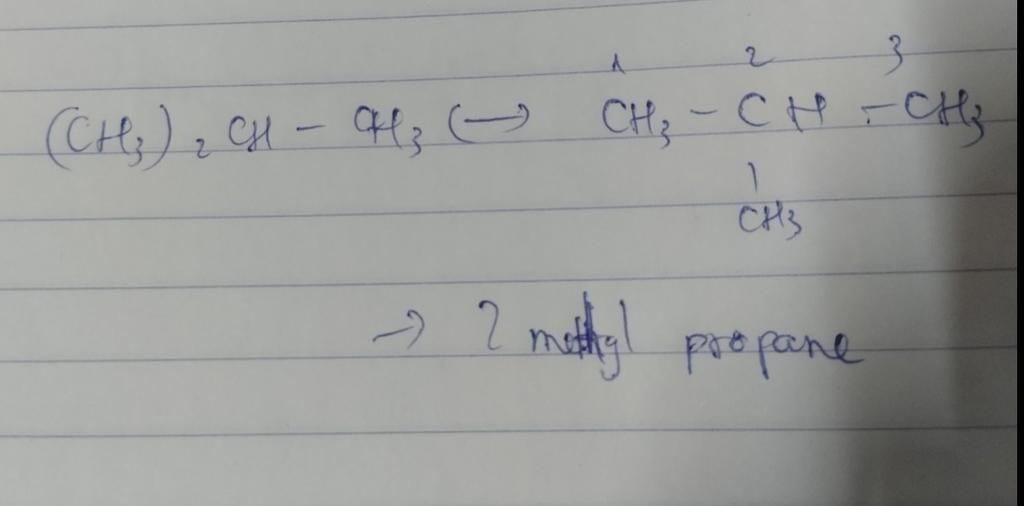 1 2 3
(CH₃)₂CH – CH₃ (→ CH₃ – CH – CH₃
|
CH₃
→ 2 methyl propane